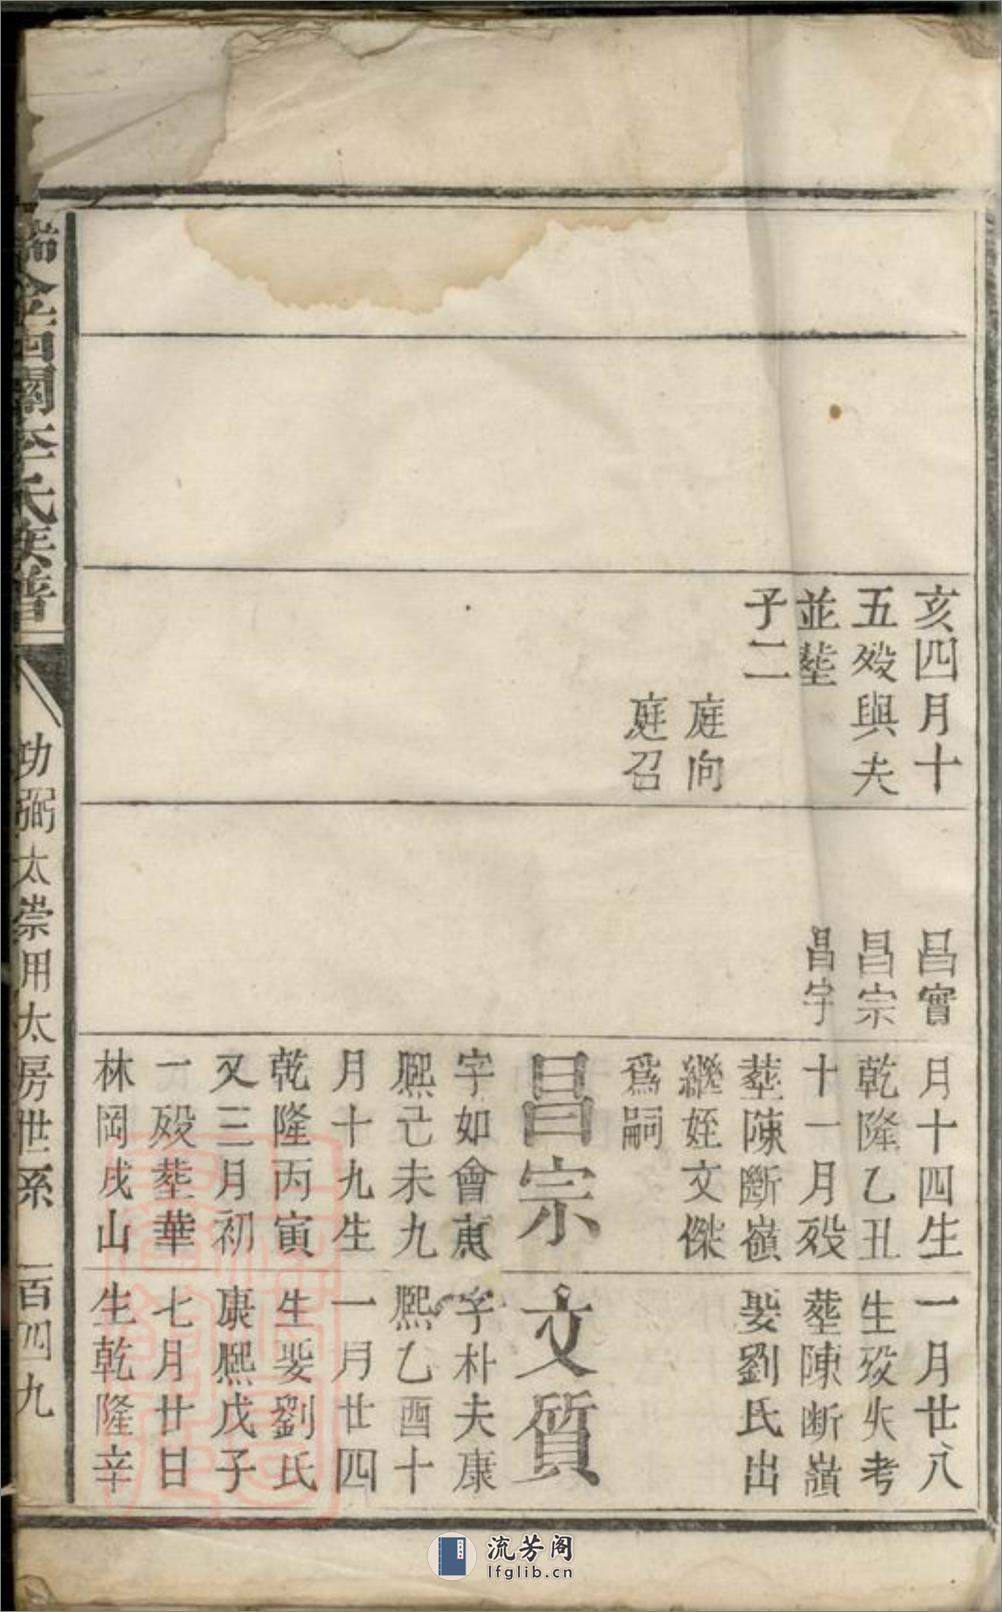 亥四月十
五歿與夫
並塟
子二
庭向
庭召
昌實
昌宗
昌宇
月十四生
乾隆乙丑
十一月歿
塟陳斷嶺
繼姪文傑
爲嗣
昌宗
字如會康
熙己未九
月十九生
乾隆丙寅
又三月初
一歿塟華
林岡戌山
一月廿八
生歿失考
塟陳断嶺
娶劉氏出
文質
字朴夫康
熙乙酉十
一月廿四
生娶劉氏
康熙戊子
七月廿日
生乾隆辛
瑞金西關李氏族譜
功弼太崇用太房世系 百四九
流芳阁
lfglib.cn